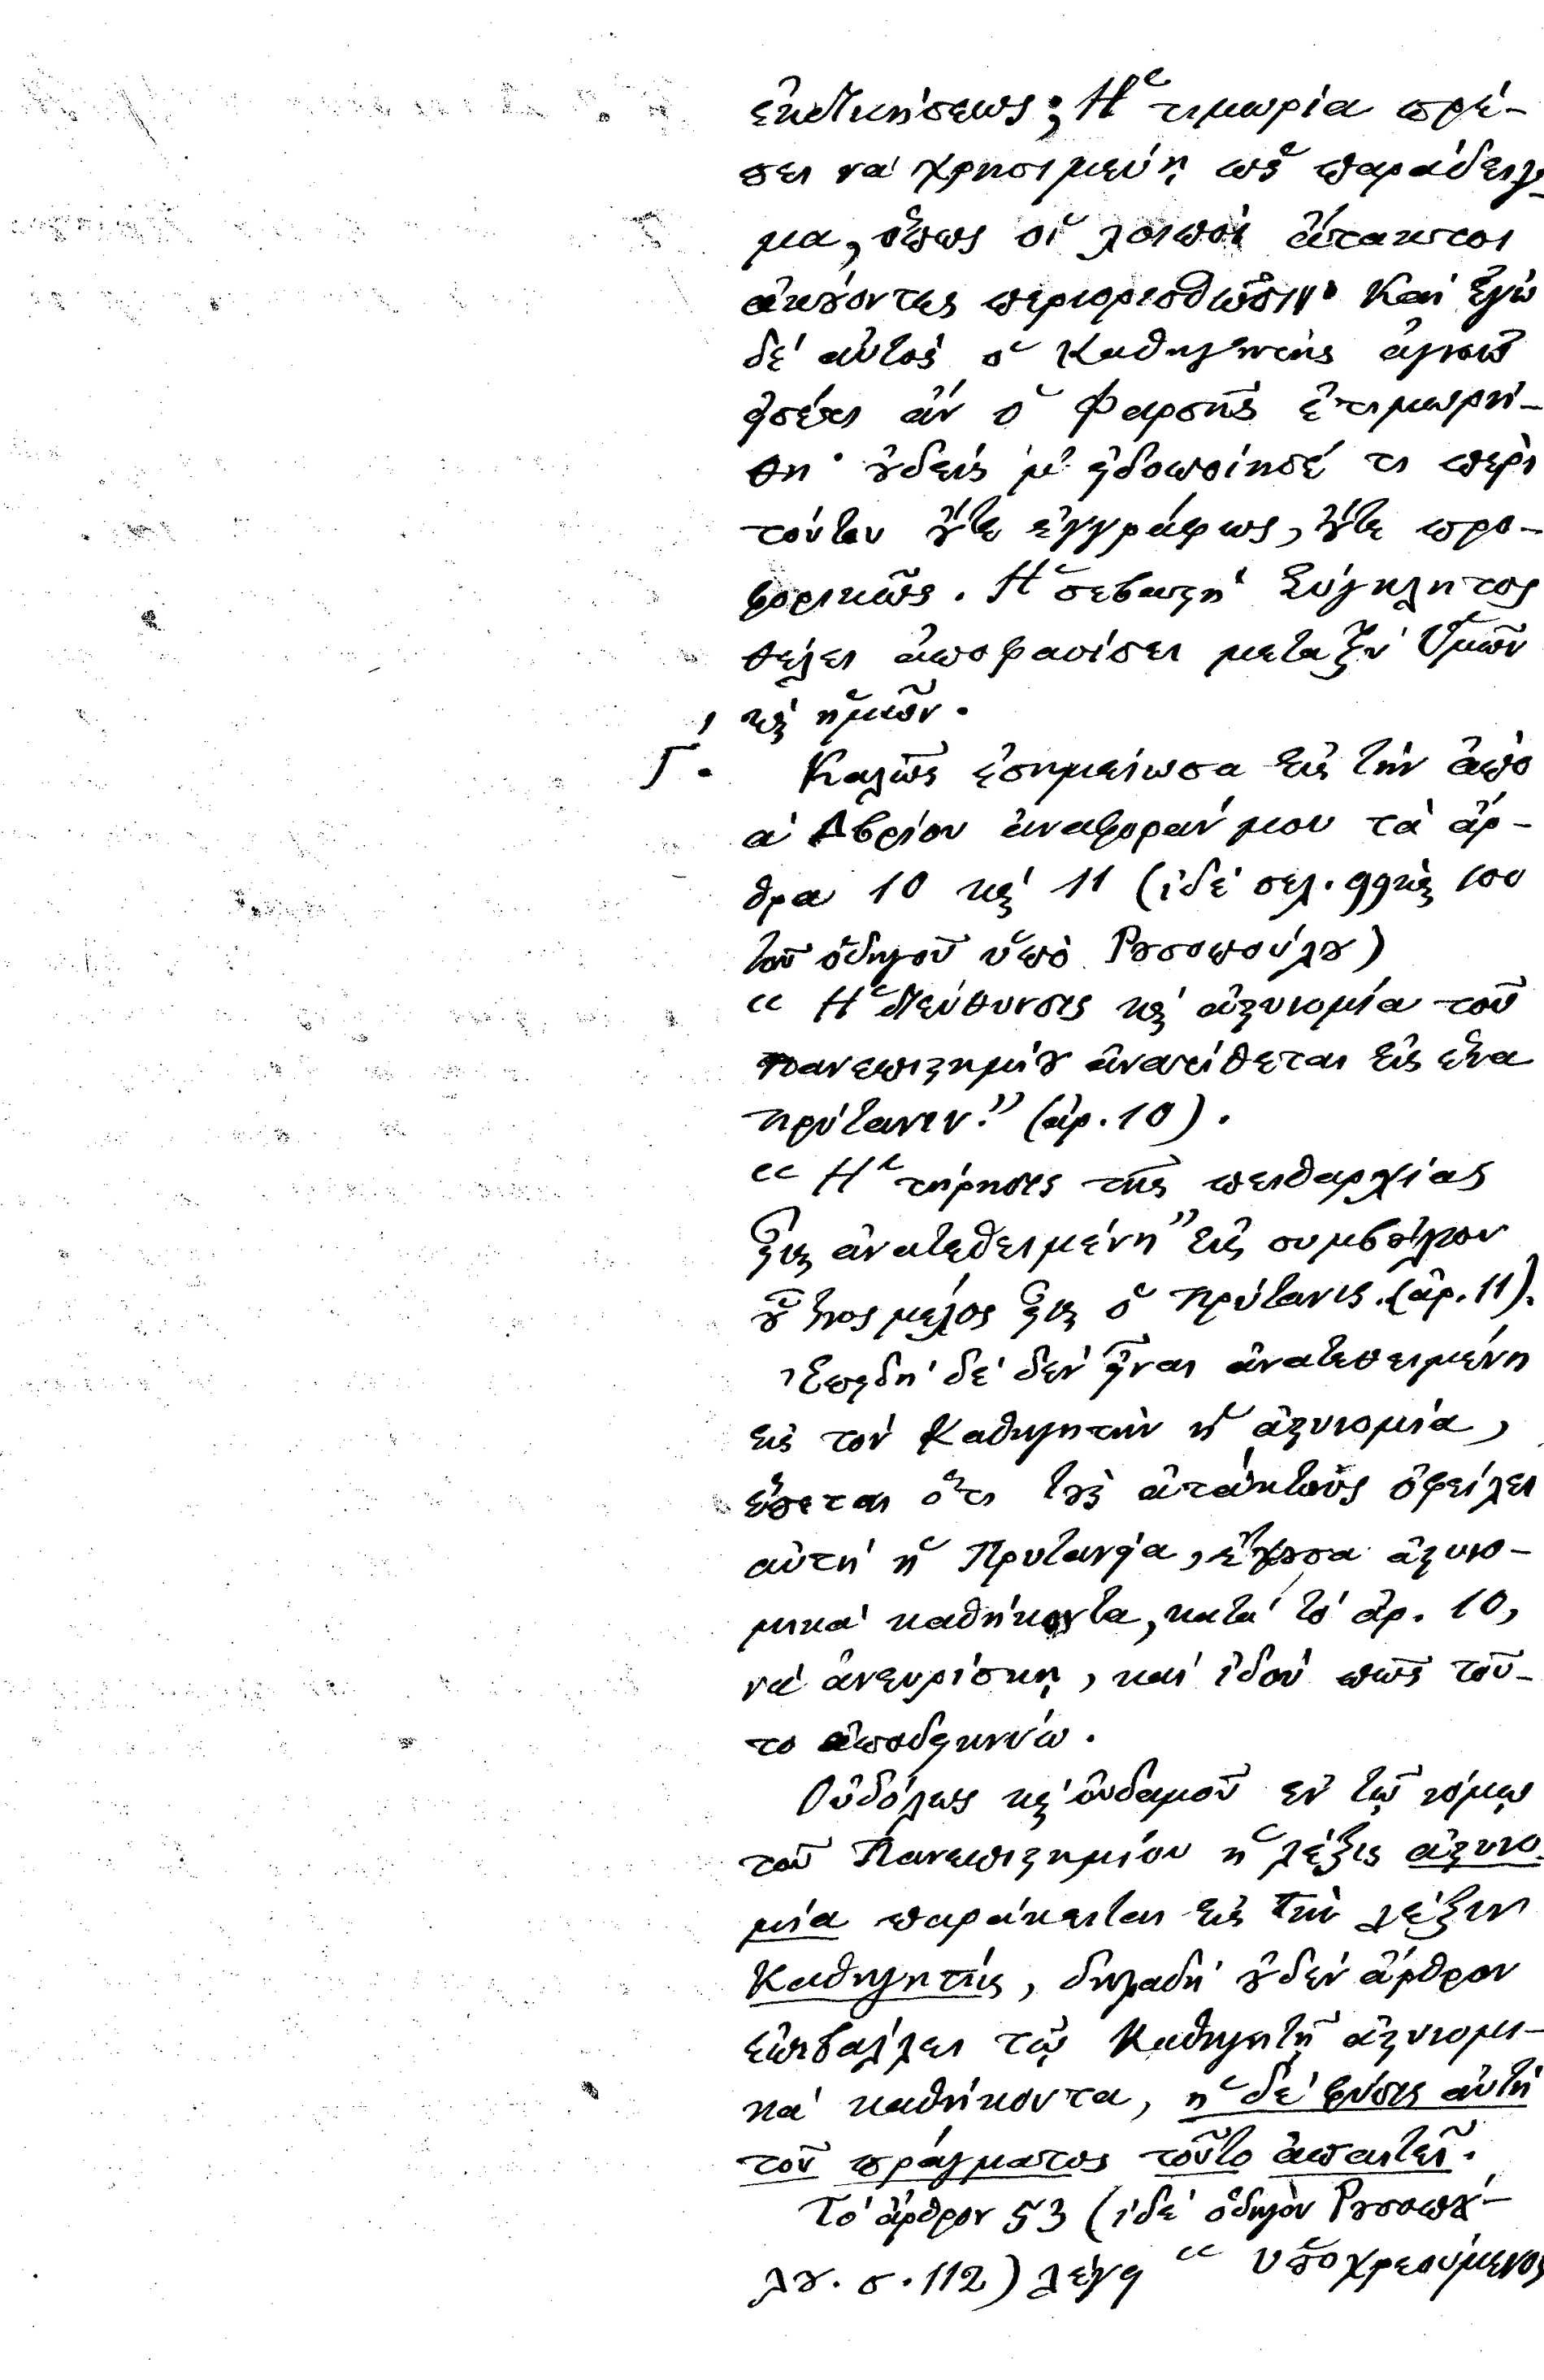 ἐκδικήσεως; Ἡ τιμωρία πρέ-
πει νὰ χρησιμεύῃ ὡς παράδειγ-
μα, ὅπως οἱ λοιποὶ ἄτακτοι
ἀκούοντες περιορισθῶσιν· Καὶ ἐγὼ
δὲ αὐτὸς ὁ Καθηγητὴς ἀγνοῶ
εἰσέτι ἂν ὁ Φαρσῆς ἐτιμωρή-
θη· οὐδεὶς μ' εἰδοποίησέ τι περὶ
τούτου οὔτε ἐγγράφως, οὔτε προ-
φορικῶς. Ἡ σεβαστὴ Σύγκλητος
θέλει ἀποφασίσει μεταξὺ Ὑμῶν
καὶ ἡμῶν.
Γʹ. Καλῶς ἐσημείωσα εἰς τὴν ἀπὸ
αʹ Δβρίου ἀναφοράν μου τὰ ἄρ-
θρα 10 καὶ 11 (ἰδὲ σελ. 99 καὶ 100
τοῦ ὁδηγοῦ ὑπὸ Ῥουσοπούλου)
« Ἡ διεύθυνσις καὶ ἀστυνομία τοῦ
Πανεπιστημίου ἀνατίθεται εἰς ἕνα
πρύτανιν." (ἄρ. 10).
« Ἡ τήρησις τῆς πειθαρχίας
εἶναι ἀνατεθειμένη" εἰς συμβούλιον
οὗτινος μέλος εἶναι ὁ πρύτανις. (ἄρ. 11).
Ἐπειδὴ δὲ δὲν εἶναι ἀνατεθειμένη
εἰς τὸν Καθηγητὴν ἡ ἀστυνομία,
ἕπεται ὅτι τοὺς ἀτάκτους ὀφείλει
αὐτὴ ἡ Πρυτανεία, ἔχουσα ἀστυνο-
μικὰ καθήκοντα, κατὰ τὸ ἄρ. 10,
νὰ ἀνευρίσκῃ, καὶ ἰδοὺ πῶς τοῦ-
το ἀποδεικνύω.
Οὐδόλως καὶ οὐδαμοῦ ἐν τῷ νόμῳ
τοῦ Πανεπιστημίου ἡ λέξις ἀστυνο-
μία παράκειται εἰς τὴν λέξιν
Καθηγητής, δηλαδὴ οὐδὲν ἄρθρον
ἐπιβάλλει τῷ Καθηγητῇ ἀστυνομι-
κὰ καθήκοντα, ἡ δὲ φύσις αὐτὴ
τοῦ πράγματος τοῦτο ἀπαιτεῖ.
Τὸ ἄρθρον 53 (ἰδὲ ὁδηγὸν Ῥουσοπού-
λου. σ. 112) λέγει « ὑποχρεούμενος